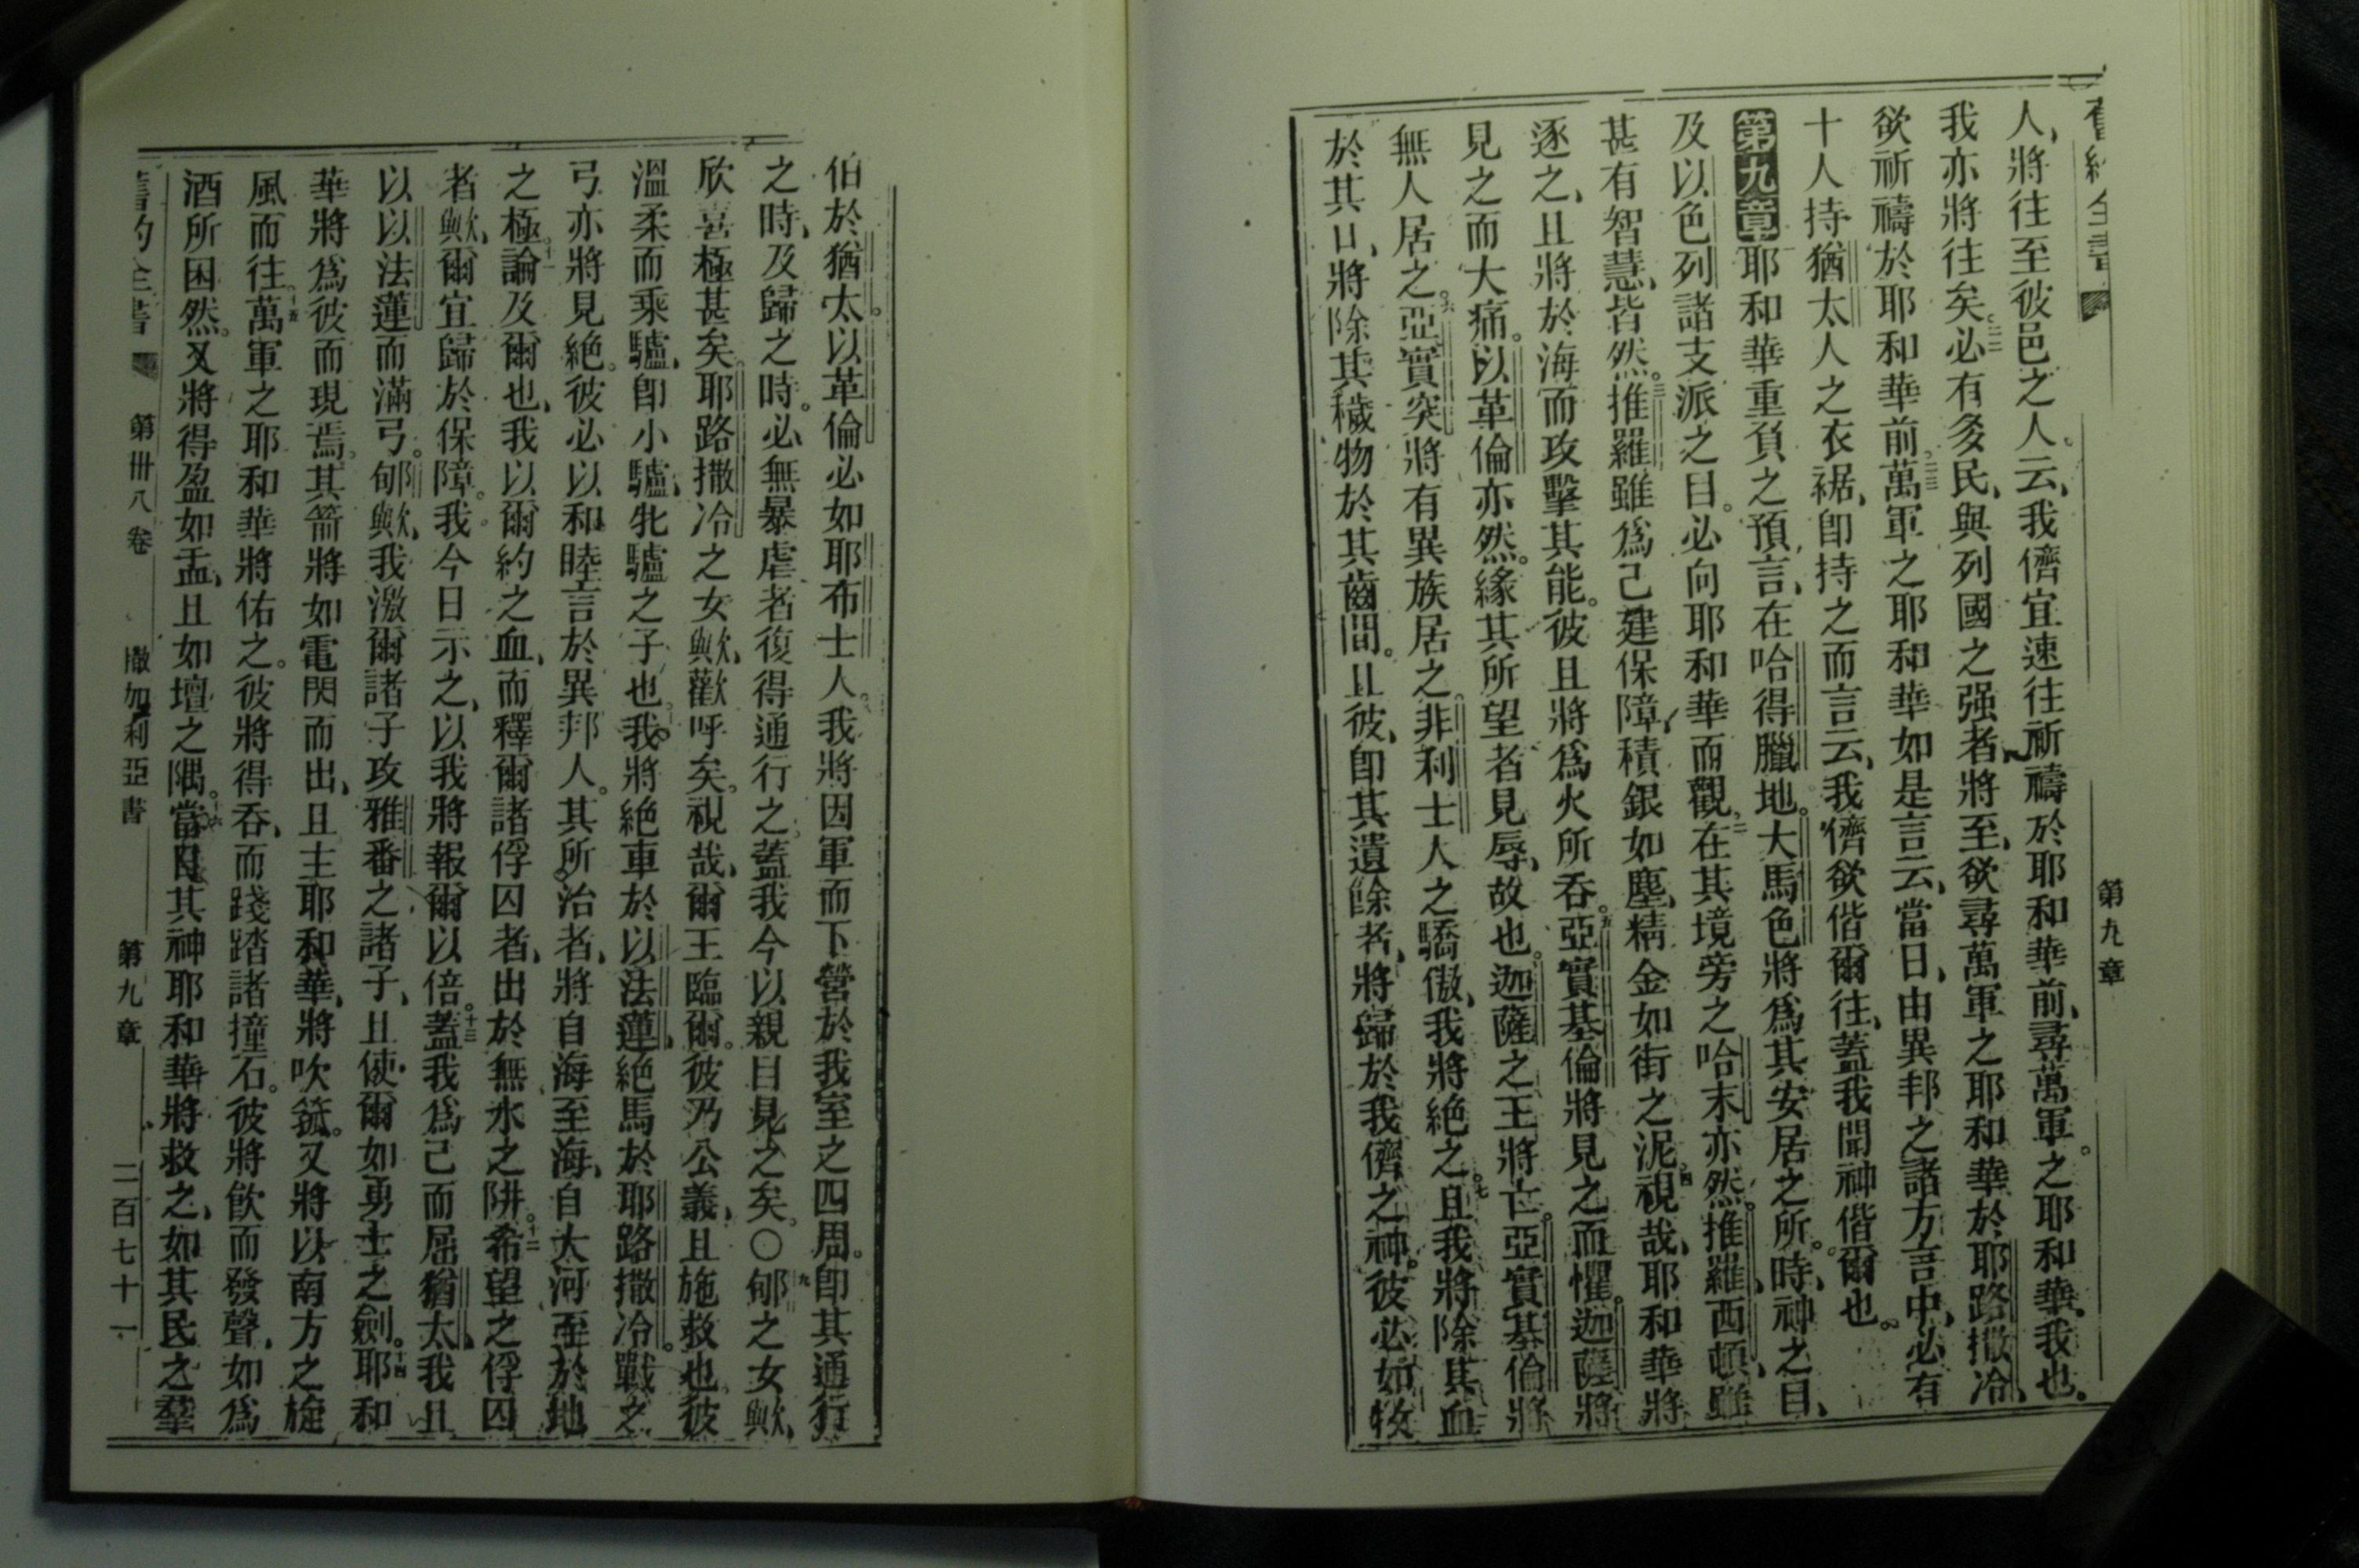 舊約全書
第九章
人、將往至彼邑之人。云、我儕宜速往祈禱於耶和華前、尋萬軍。之耶和華、我也。
我亦將往矣。二二必有多民、與列國之强者、將至、欲尋萬軍之耶和華於耶路撒冷、
欲祈禱於耶和華前。二三萬軍之耶和華如是言云、當日、由異邦之諸方言中、必有
十人持猶太人之衣裾、卽持之而言云、我儕欲偕爾往、蓋我聞神偕爾也。
第九章耶和華重負之預言、在哈得臘地。大馬色將爲其安居之所。時、神之目、
及以色列諸支派之目。必向耶和華而觀。二在其境旁之哈末亦然。推羅、西頓、雖
甚有智慧、皆然。三推羅雖爲己建保障、積銀如塵、精金如街之泥。四視哉、耶和華將
逐之、且將於海而攻擊其能。彼且將爲火所吞。五亞實基倫將見之而懼。迦薩將
見之而大痛。以革倫亦然。緣其所望者見辱、故也。迦薩之王將亡。亞實基倫將
無人居之。六亞實突將有異族居之。非利士人之驕傲、我將絕之。七且我將除其血
於其口、將除其穢物於其齒間。且彼、卽其遺餘者、將歸於我儕之神。彼必如牧
伯於猶太。以革倫必如耶布士人。我將因軍而下營於我室之四周。卽其通行
之時、及歸之時。必無暴虐者復得通行之。蓋我今以親目見之矣。〇九郇之女歟、
欣喜極甚矣。耶路撒冷之女歟、歡呼矣。視哉、爾王臨爾。彼乃公義、且施救也。彼
溫柔而乘驢、卽小驢、牝驢之子也。十我將絕車於以法蓮、絕馬於耶路撒冷。戰之
弓亦將見絕。彼必以和睦言於異邦人。其所治者、將自海至海、自大河至於地
之極。十一論及爾也、我以爾約之血、而釋爾諸俘囚者、出於無水之阱。十二希望之俘囚
者歟、爾宜歸於保障。我今日示之、以我將報爾以倍。十三蓋我爲己而屈猶太、我且
以以法蓮而滿弓。郇歟、我激爾諸子攻雅番之諸子、且使爾如勇士之劍。十四耶和
華將爲彼而現焉。其箭將如電閃而出、且主耶和華、將吹箛。又將以南方之旋
風而往。十五萬軍之耶和華將佑之。彼將得吞、而踐踏諸撞石。彼將飮而發聲、如爲
酒所困然。又將得盈如盂、且如壇之隅。十六當日其神耶和華將救之、如其民之羣
舊約全書
第卅八卷
撒加利亞書
第九章
二百七十一